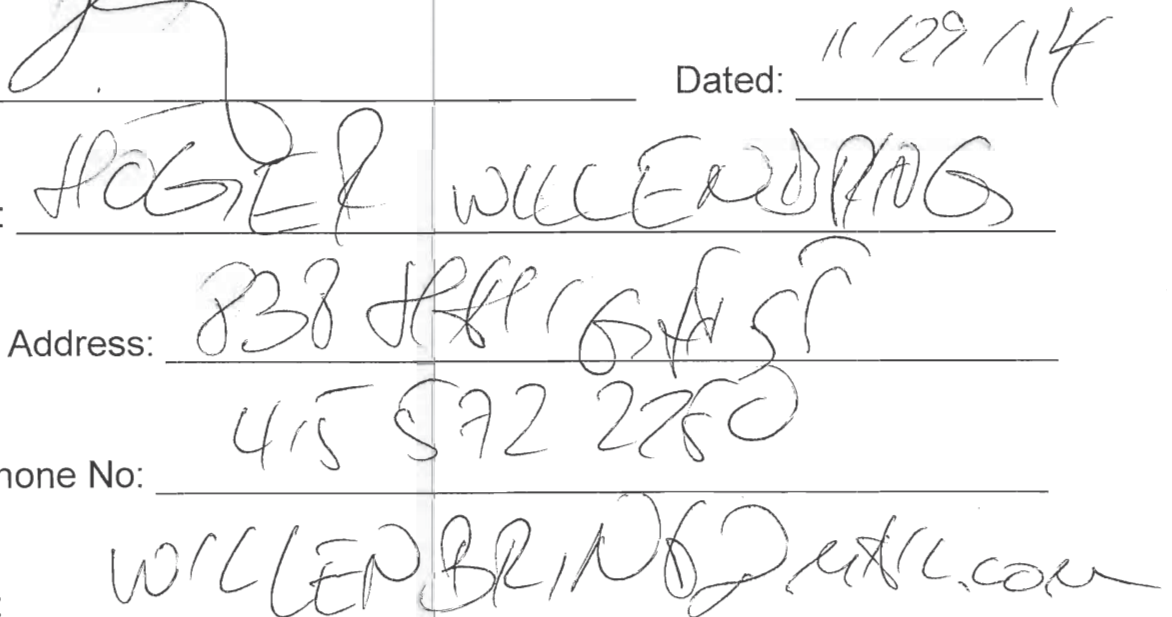 Dated: 11/29/14
: HOGER WILLENBRING
Address: 838 HAIGHT ST
hone No: 415 572 2250
: WILLENBRING@MAIL.com